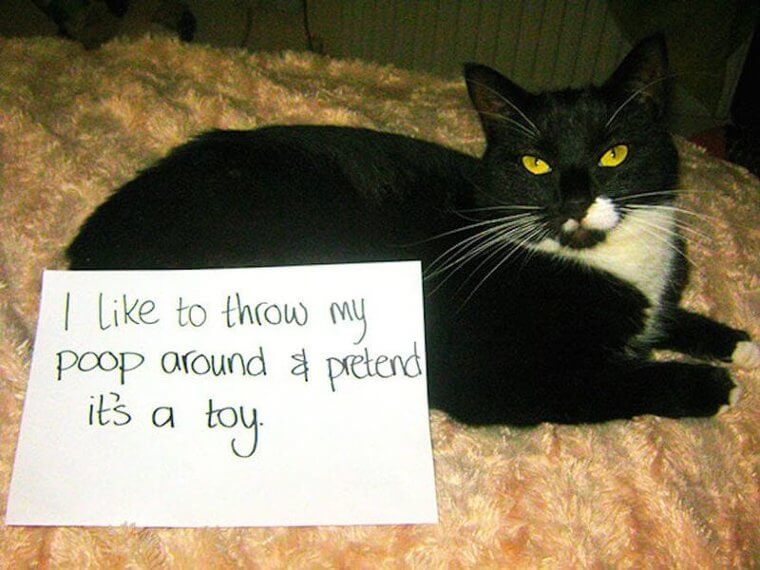 I like to throw my
poop around & pretend
it's a toy.